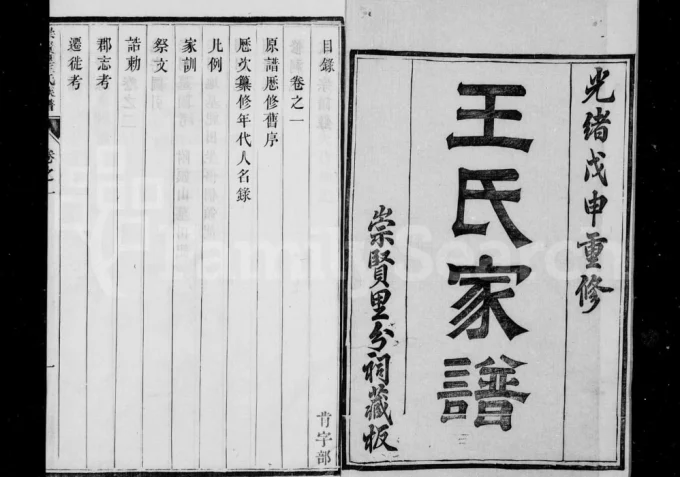 光緒戊申重修
王氏家譜
崇賢里分祠藏板
目錄
肯字部
卷之一
原譜歷修舊序
歷次纂修年代人名錄
凡例
家訓
祭文
誥勅
郡志考
遷徙考
卷之一
一
FamilySearch